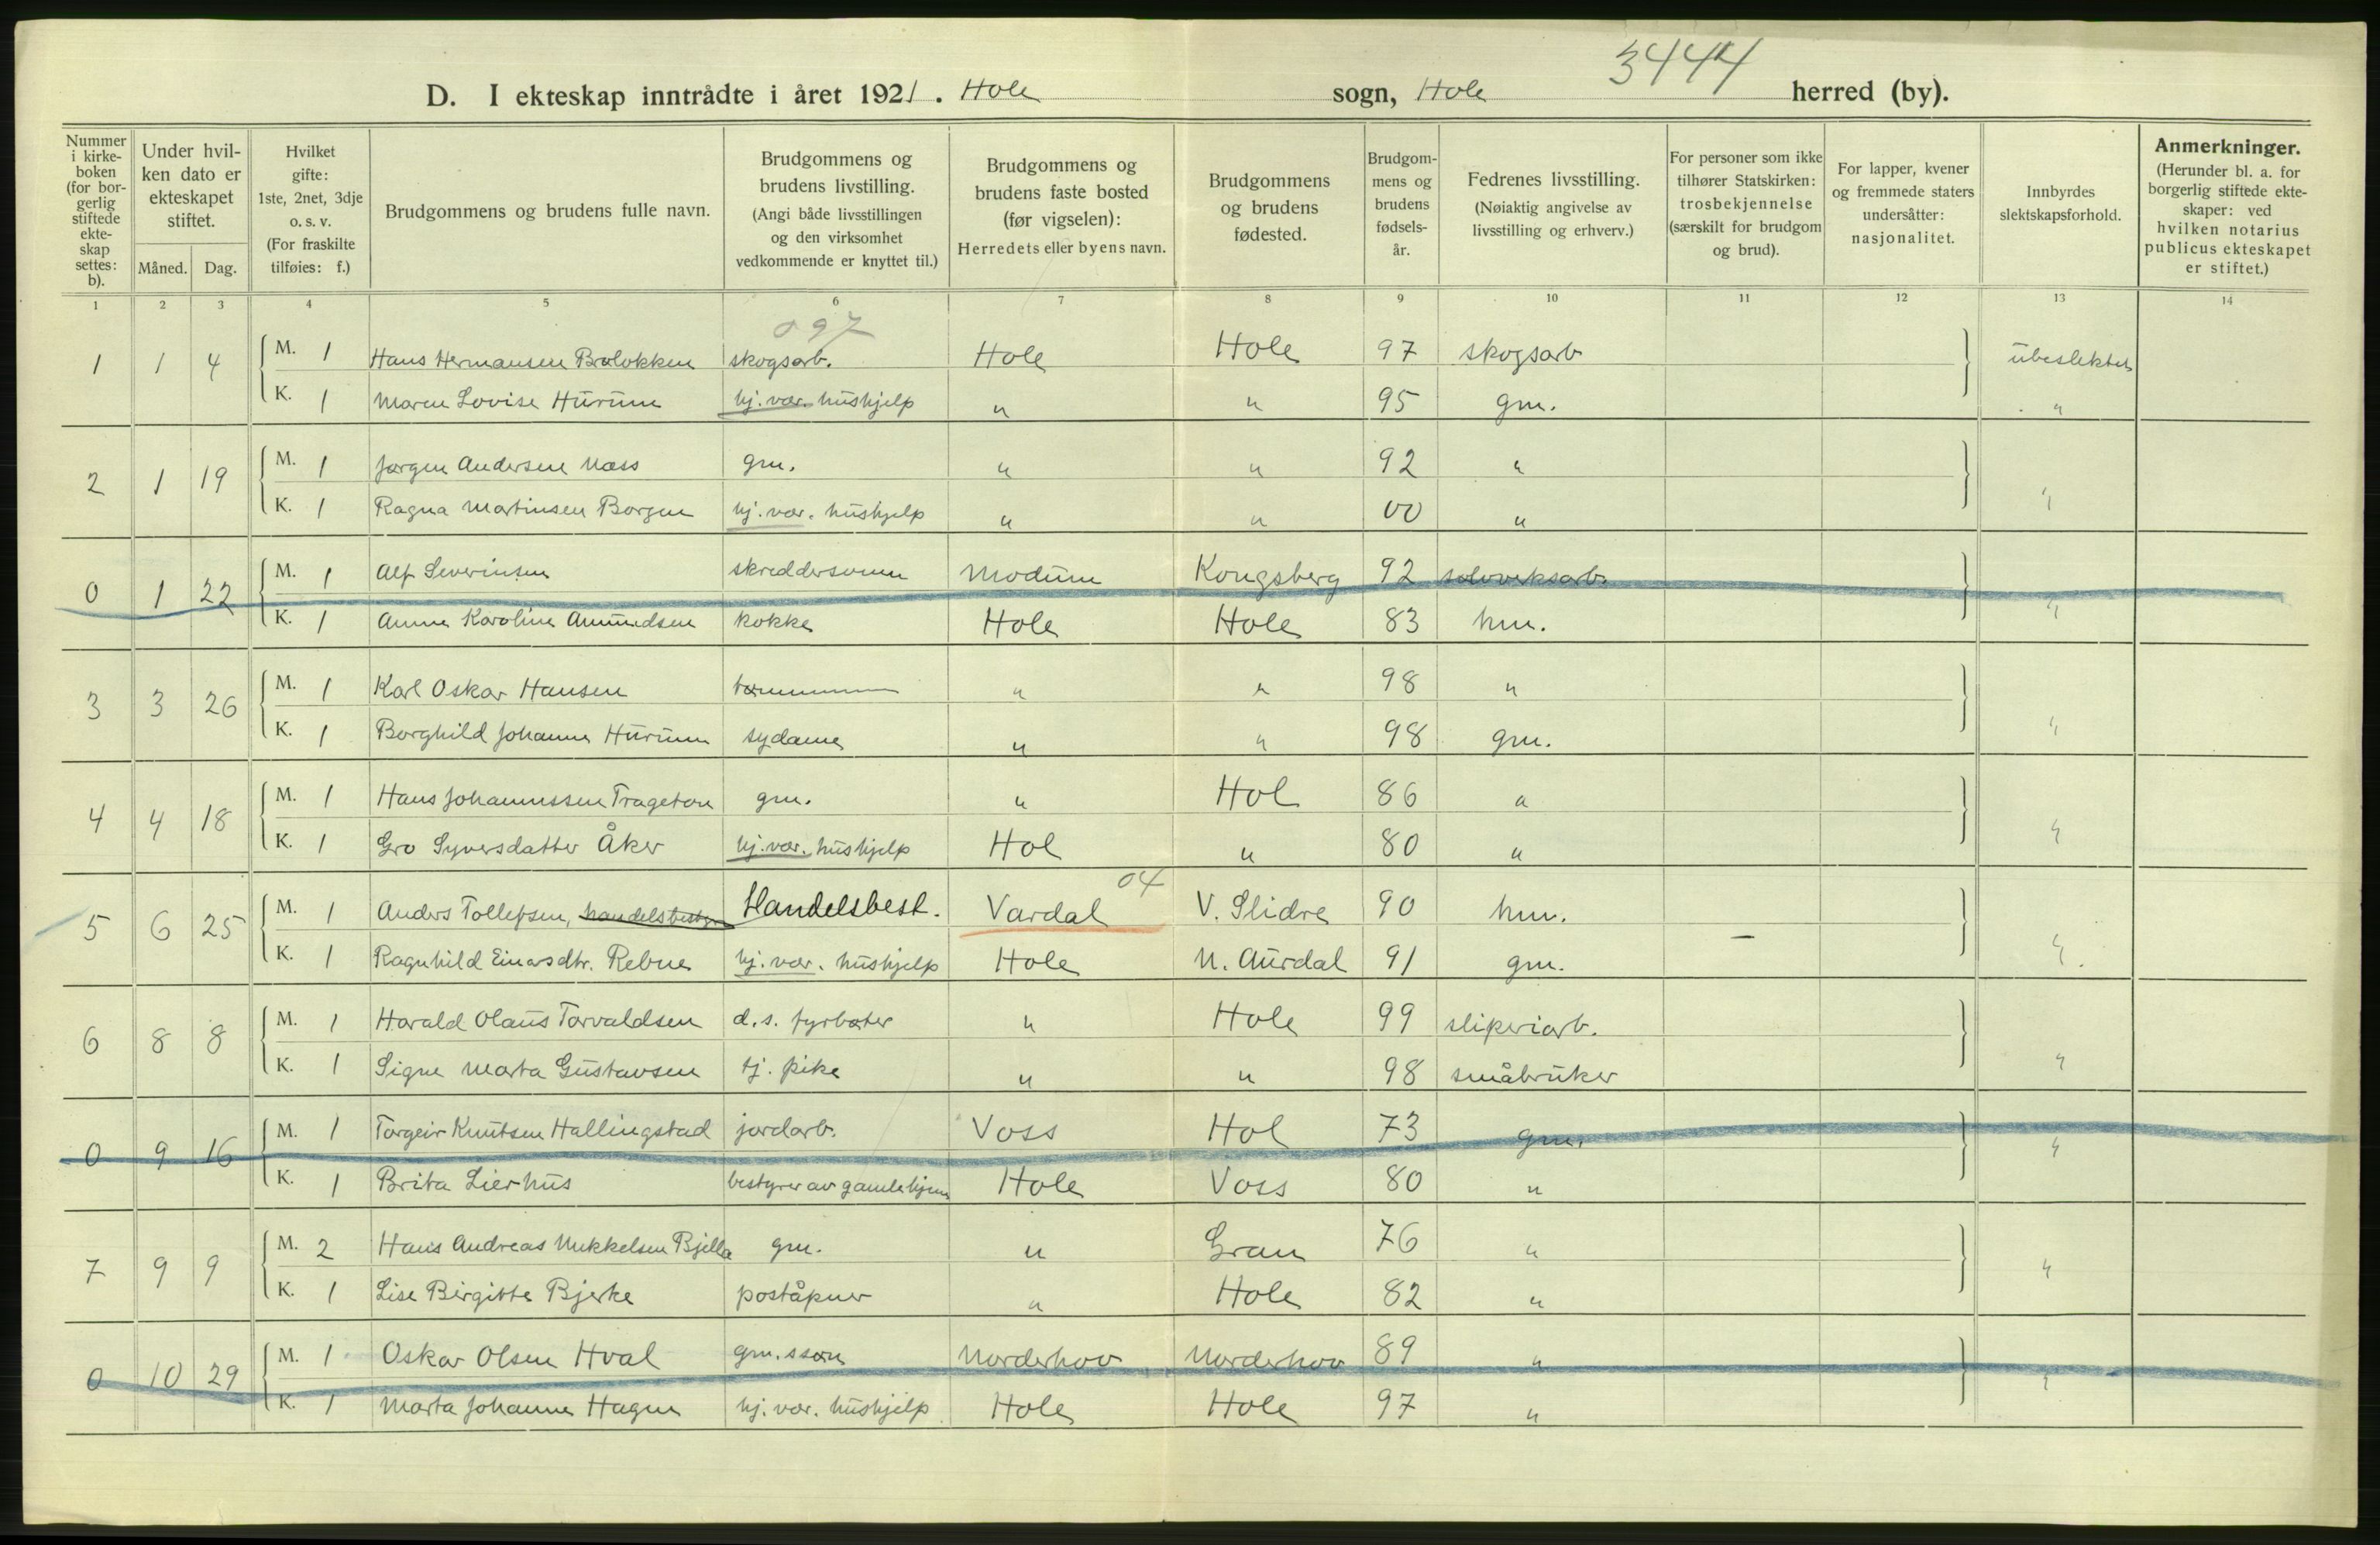 3444
D. I ekteskap inntrådte i året 1921. Hole sogn, Hole herred (by).
Nummer i kirke-boken (for bor-gerlig stiftede ekte-skap settes: b).
Under hvil-ken dato er ekteskapet stiftet.
Måned. Dag.
Hvilket gifte: 1ste, 2net, 3dje o. s. v. (For fraskilte tilføies: f.)
Brudgommens og brudens fulle navn.
Brudgommens og brudens livstilling. (Angi både livsstillingen og den virksomhet vedkommende er knyttet til.)
Brudgommens og brudens faste bosted (før vigselen): Herredets eller byens navn.
Brudgommens og brudens fødested.
Brudgom-mens og brudens fødsels-år.
Fedrenes livsstilling. (Nøiaktig angivelse av livsstilling og erhverv.)
For personer som ikke tilhører Statskirken: trosbekjennelse (særskilt for brudgom og brud).
For lapper, kvener og fremmede staters undersåtter: nasjonalitet.
Innbyrdes slektskapsforhold.
Anmerkninger. (Herunder bl. a. for borgerlig stiftede ekte-skaper: ved hvilken notarius publicus ekteskapet er stiftet.)
1 2 3 4 5 6 7 8 9 10 11 12 13 14
097
1 1 4 M. 1 Hans Hermansen Braløkken skogsarb. Hole Hole 97 skogsarb ubeslektet
K. 1 Maren Lovise Hurum hj. vær. hushjelp " " 95 gm. "
2 1 19 M. 1 Jørgen Andersen Næss gm. " " 92 "
K. 1 Ragna Martinsen Borgen hj. vær. hushjelp " " 00 " "
0 1 22 M. 1 Alf Severinsen skreddersvenn Modum Kongsberg 92 sølvverksarb.
K. 1 Anna Karoline Amundsen kokke Hole Hole 83 hm. "
3 3 26 M. 1 Karl Oskar Hansen tømmermann " " 98 "
K. 1 Borghild Johanne Hurum sydame " " 98 gm. "
4 4 18 M. 1 Hans Johannessen Trageton gm. " Hol 86 "
K. 1 Gro Syversdatter Åker hj. vær. hushjelp Hol " 80 " "
04
5 6 25 M. 1 Anders Tollefsen, handelsbestyr Handelsbest. Vardal V. Slidre 90 hm.
K. 1 Ragnhild Einarsdtr. Rebne hj. vær. hushjelp Hole N. Aurdal 91 gm. "
6 8 8 M. 1 Harald Olaus Torvaldsen d.s. fyrbøter " Hole 99 sliperiarb.
K. 1 Signe Marta Gustavsen tj. pike " " 98 småbruker "
0 9 16 M. 1 Torgeir Knutsen Hallingstad jordarb. Voss Hol 73 gm. "
K. 1 Brita Lierhus bestyrer av gamlehjem Hole Voss 80 "
7 9 9 M. 2 Hans Andreas Mikkelsen Bjella gm. " Gran 76 "
K. 1 Lise Birgitte Bjerke poståpner " Hole 82 " "
0 10 29 M. 1 Oskar Olsen Hval gm. sønn Norderhov Norderhov 89 "
K. 1 Marta Johanne Hagen hj. vær. hushjelp Hole Hole 97 " "